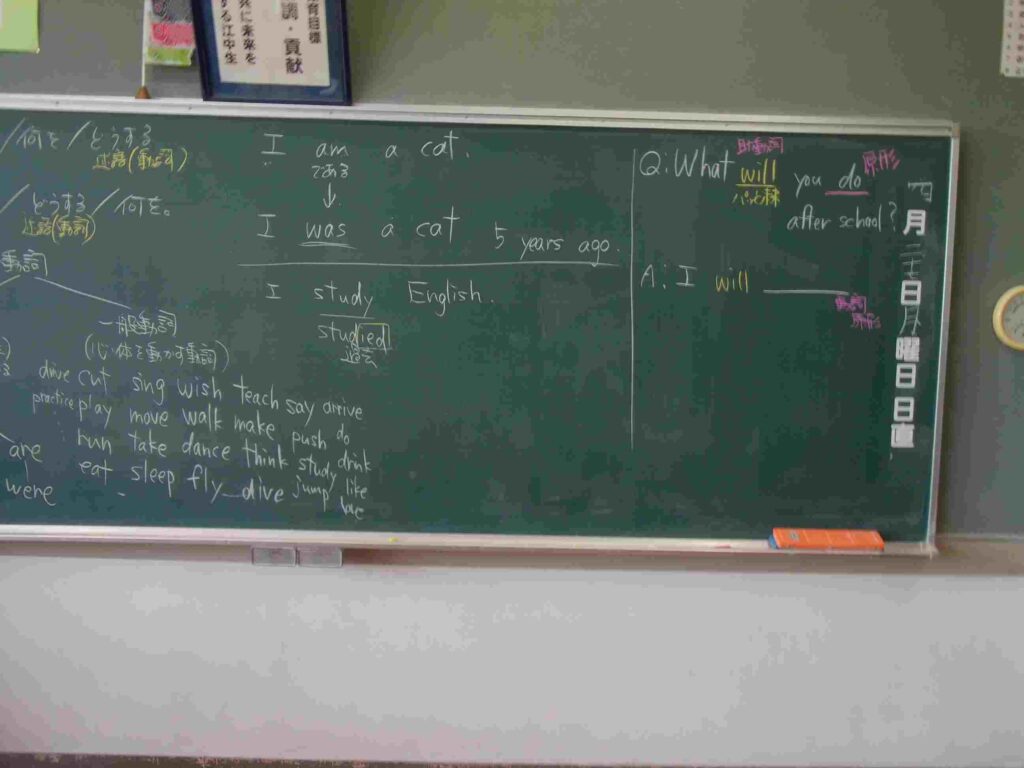 育目標
調・貢献
共に未来を
する江中生
/何を/どうする
述語(動詞)
/どうする/何を。
述語(動詞)
動詞
一般動詞
(心・体を動かす動詞)
drive cut sing wish teach say arrive
practice play move walk make push do
run take dance think study drink
eat sleep fly dive jump like
are
were
I am a cat.
である
↓
I was a cat 5 years ago.
I study English.
studied
過去
助動詞
原形
Q: What will you do
after school?
A: I will
動詞
原形
月
日
曜日
日直